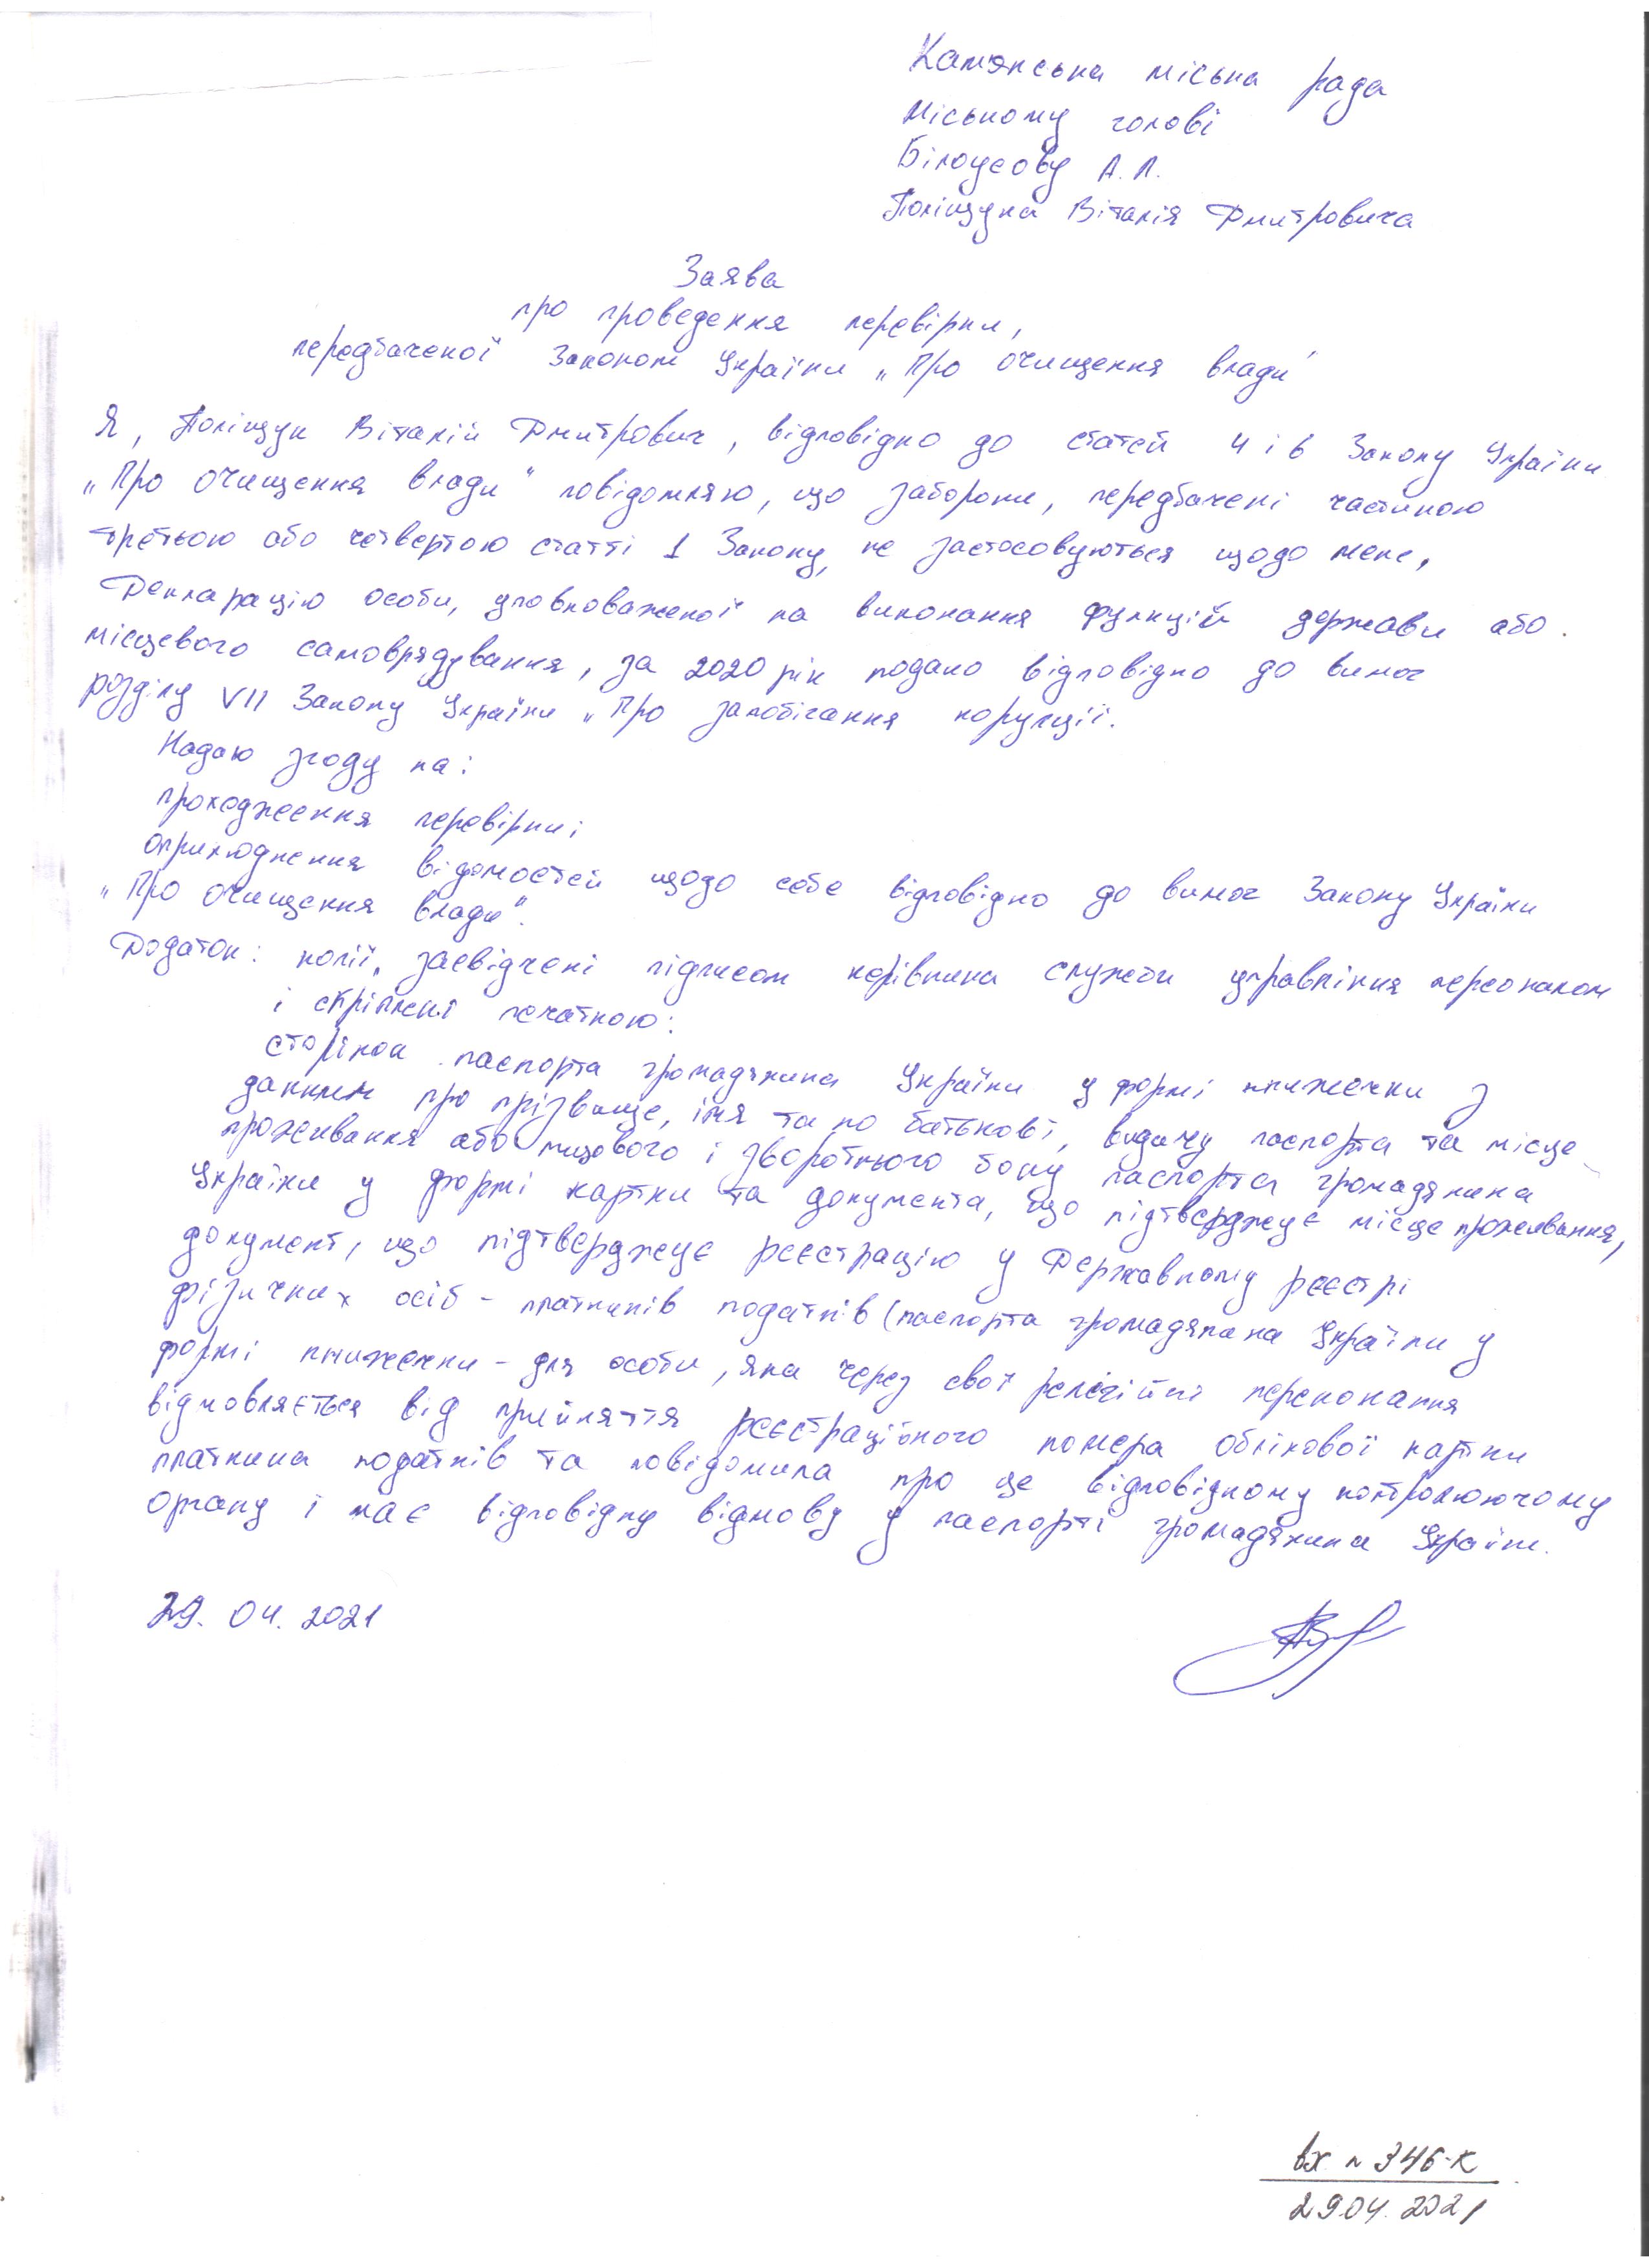 Камянська міська рада
Міському голові
Білоусову А.Л.
Поліщука Віталія Дмитровича
Заява
про проведення перевірки,
передбаченої Законом України „Про очищення влади"
Я, Поліщук Віталій Дмитрович, відповідно до статей 4 і 6 Закону України
„Про очищення влади" повідомляю, що заборони, передбачені частиною
третьою або четвертою статті 1 Закону, не застосовуються щодо мене,
Декларацію особи, уповноваженої на виконання функцій держави або
місцевого самоврядування, за 2020 рік подано відповідно до вимог
розділу VII Закону України „Про запобігання корупції.
Надаю згоду на:
проходження перевірки;
оприлюднення відомостей щодо себе відповідно до вимог Закону України
„Про очищення влади".
Додаток: копії, засвідчені підписом керівника служби управління персоналом
і скріплені печаткою:
сторінок паспорта громадянина України у формі книжечки з
даними про прізвище, імя та по батькові, видачу паспорта та місце
проживання або лицового і зворотнього боку паспорта громадянина
України у формі картки та документа, що підтверджує місце проживання,
документ, що підтверджує реєстрацію у Державному реєстрі
фізичних осіб - платників податків (паспорта громадянина України у
формі книжечки - для особи, яка через свої релігійні переконання
відмовляється від прийняття реєстраційного номера облікової картки
платника податків та повідомила про це відповідному контролюючому
органу і має відповідну відмову у паспорті громадянина України.
29. 04. 2021
вх № 346-К
29.04.2021